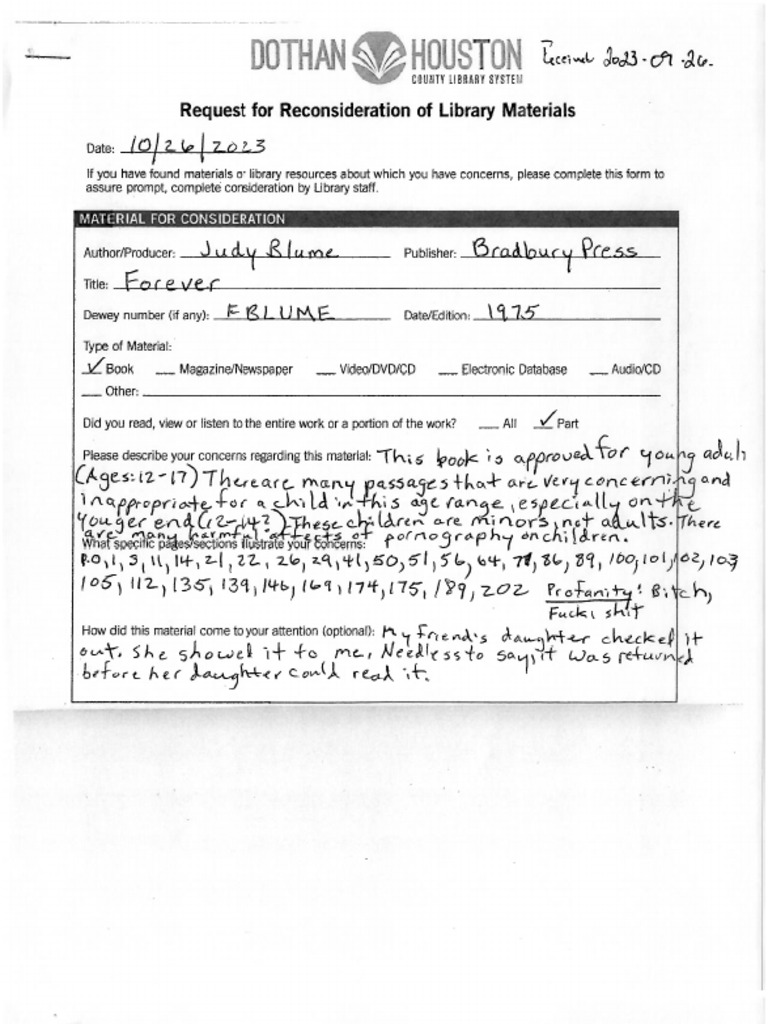 DOTHAN HOUSTON
COUNTY LIBRARY SYSTEM
Received 2023-09-26.
Request for Reconsideration of Library Materials
Date: 10/26/2023
If you have found materials or library resources about which you have concerns, please complete this form to
assure prompt, complete consideration by Library staff.
MATERIAL FOR CONSIDERATION
Author/Producer: Judy Blume Publisher: Bradbury Press
Title: Forever
Dewey number (if any): F BLUME Date/Edition: 1975
Type of Material:
✓ Book __ Magazine/Newspaper __ Video/DVD/CD __ Electronic Database __ Audio/CD
__ Other:
Did you read, view or listen to the entire work or a portion of the work? __ All ✓ Part
Please describe your concerns regarding this material: This book is approved for young adults
(Ages: 12-17) There are many passages that are very concerning and
inappropriate for a child in this age range, especially on the
youger end (12-14?) These children are minors, not adults. There
are many harmful affects of pornography on children.
What specific pages/sections illustrate your concerns:
P.0,1,3,11,14,21,22,26,29,41,50,51,56,64,71,86,89,100,101,102,103
105,112,135,139,146,169,174,175,189,202 Profanity: Bitch,
Fuck, shit
How did this material come to your attention (optional): My friend's daughter checked it
out. She showed it to me. Needless to say, it was returned
before her daughter could read it.